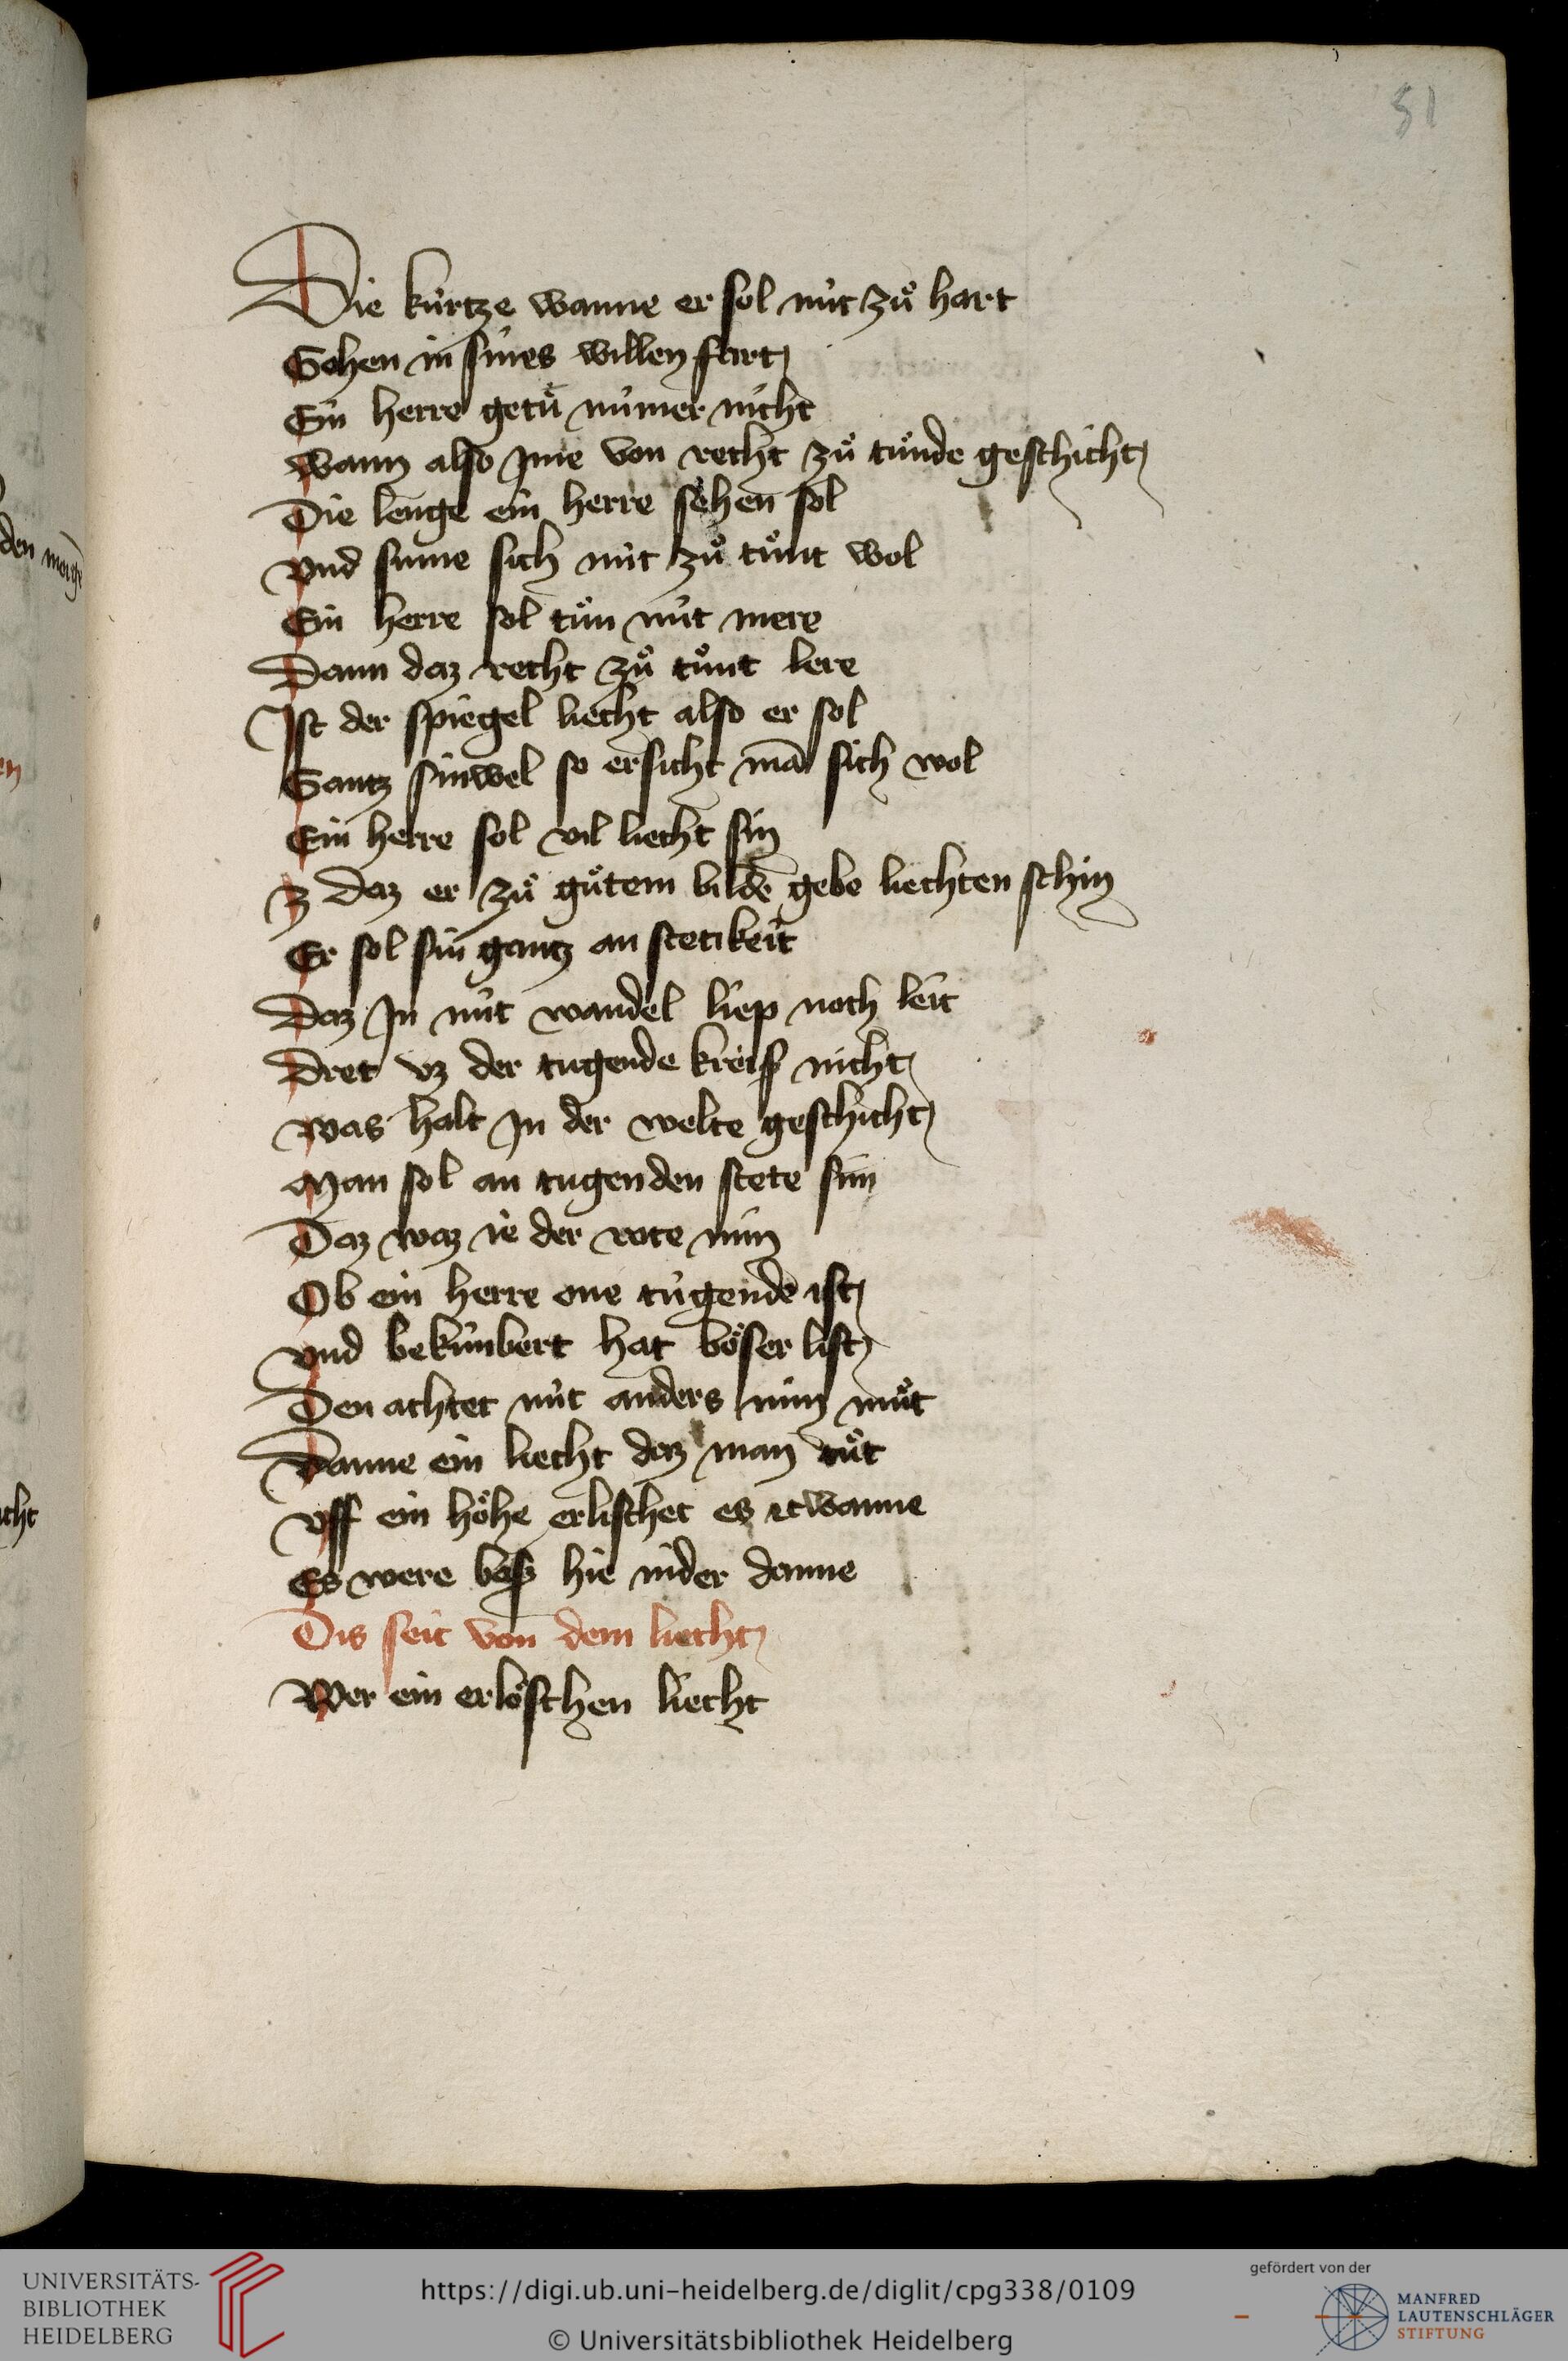 51
Die kúrtze wanne er sol nút zuͦ hart
Gohen in sines willen fart
Ein herre getuͦ númer nicht
Wann also jme von recht zuͦ tuͦnde geschicht
Die lenge ein herre sehen sol
Vnd sume sich nút zuͦ tuͦnt wol
Ein herre sol tuͦn nút mere
Dann daz recht zuͦ tuͦnt lere
Ist der spiegel liecht also er sol
Gantz sinwel so ersicht mā sich wol
Ein herre sol vil liecht sin
Daz er zuͦ guͦtem bilde gebe liechten schin
Er sol sin gantz an stetikeit
Daz jn nút wandel liep noch leit
Dret vz der tugende kreiß nicht
Was halt jn der welte geschicht
Man sol an tugenden stete sin
Daz waz ie der rote min
Ob ein herre one túgende ist
Vnd bekúnbert hat boͤser list
Den achtet nút anders min muͦt
Danne ein liecht daz man tuͦt
Vff ein hoͤhe erlischet es etwanne
Es were baß hie nider danne
Dis seit von dem liecht
Wer ein erloͤschen liecht
UNIVERSITÄTS-
BIBLIOTHEK
HEIDELBERG
https://digi.ub.uni-heidelberg.de/diglit/cpg338/0109
© Universitätsbibliothek Heidelberg
gefördert von der
MANFRED
LAUTENSCHLÄGER
STIFTUNG